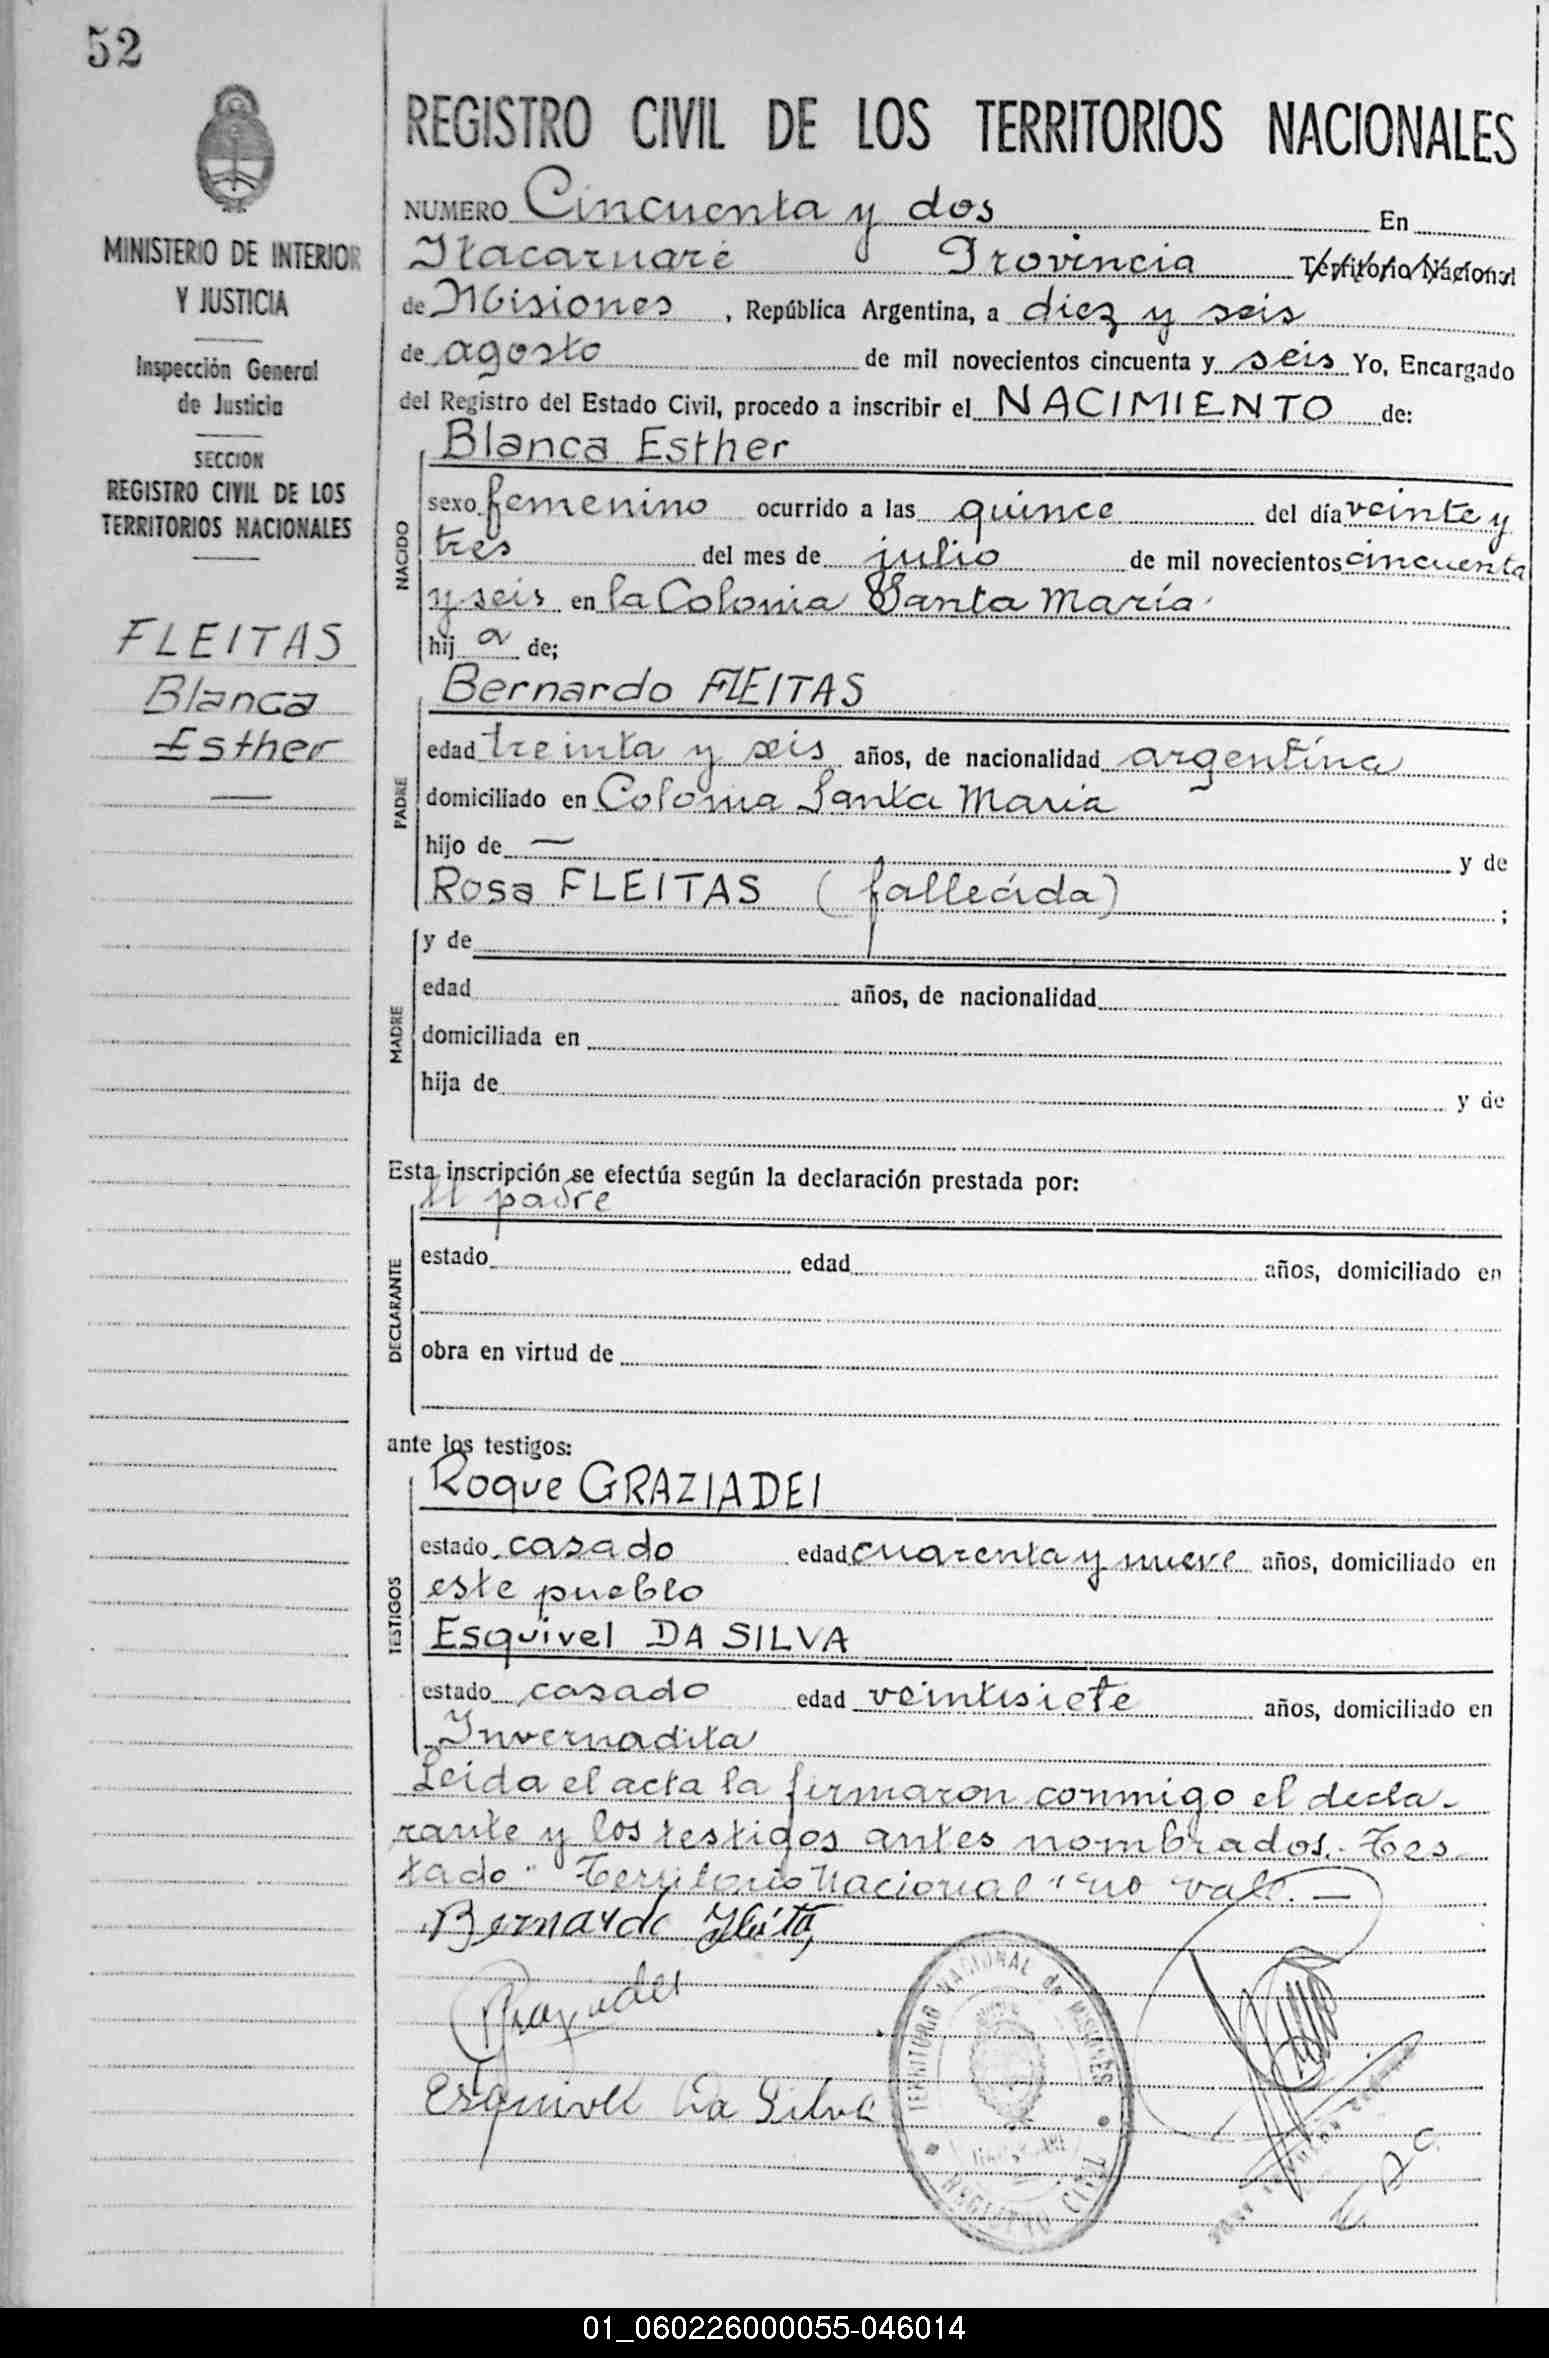 52
MINISTERIO DE INTERIOR
Y JUSTICIA
Inspección General
de Justicia
SECCION
REGISTRO CIVIL DE LOS
TERRITORIOS NACIONALES
FLEITAS
Blanca
Esther
REGISTRO CIVIL DE LOS TERRITORIOS NACIONALES
NUMERO Cincuenta y dos En
Itacaruaré Provincia Territorio Nacional
de Misiones, República Argentina, a diez y seis
de agosto de mil novecientos cincuenta y seis Yo, Encargado
del Registro del Estado Civil, procedo a inscribir el NACIMIENTO de:
Blanca Esther
NACIDO
sexo femenino ocurrido a las quince del día veinte y
tres del mes de julio de mil novecientos cincuenta
y seis en la Colonia Santa María.
hij a de;
Bernardo FLEITAS
PADRE
edad treinta y seis años, de nacionalidad argentina
domiciliado en Colonia Santa Maria
hijo de — y de
Rosa FLEITAS (fallecida) ;
MADRE
y de
edad años, de nacionalidad
domiciliada en
hija de y de
Esta inscripción se efectúa según la declaración prestada por:
El padre
DECLARANTE
estado edad años, domiciliado en
obra en virtud de
ante los testigos:
Roque GRAZIADEI
TESTIGOS
estado casado edad cuarenta y nueve años, domiciliado en
este pueblo
Esquivel DA SILVA
estado casado edad veintisiete años, domiciliado en
Invernadita
Leida el acta la firmaron conmigo el decla-
rante y los testigos antes nombrados.- Tes-
tado "Territorio Nacional" no vale.—
Bernardo Fleitas
Graziadei
Esquivel Da Silva
TERRITORIO NACIONAL de MISIONES
REGISTRO CIVIL
01_060226000055-046014